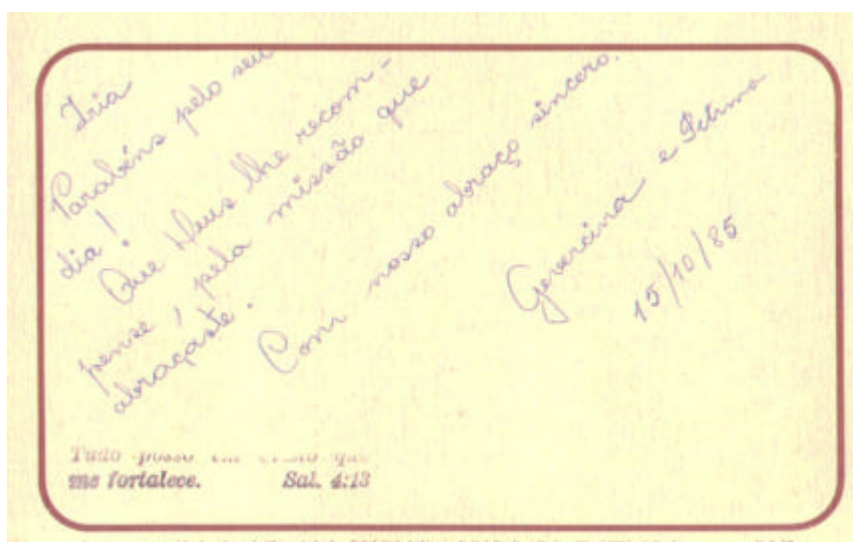 Iria
Parabéns pelo seu
dia!
Que Deus lhe recom-
pense, pela missão que
abraçaste.
Com nosso abraço sincero.
Gevercina e
15/10/85
Tudo posso em Cristo que
me fortalece. Sal. 4:13